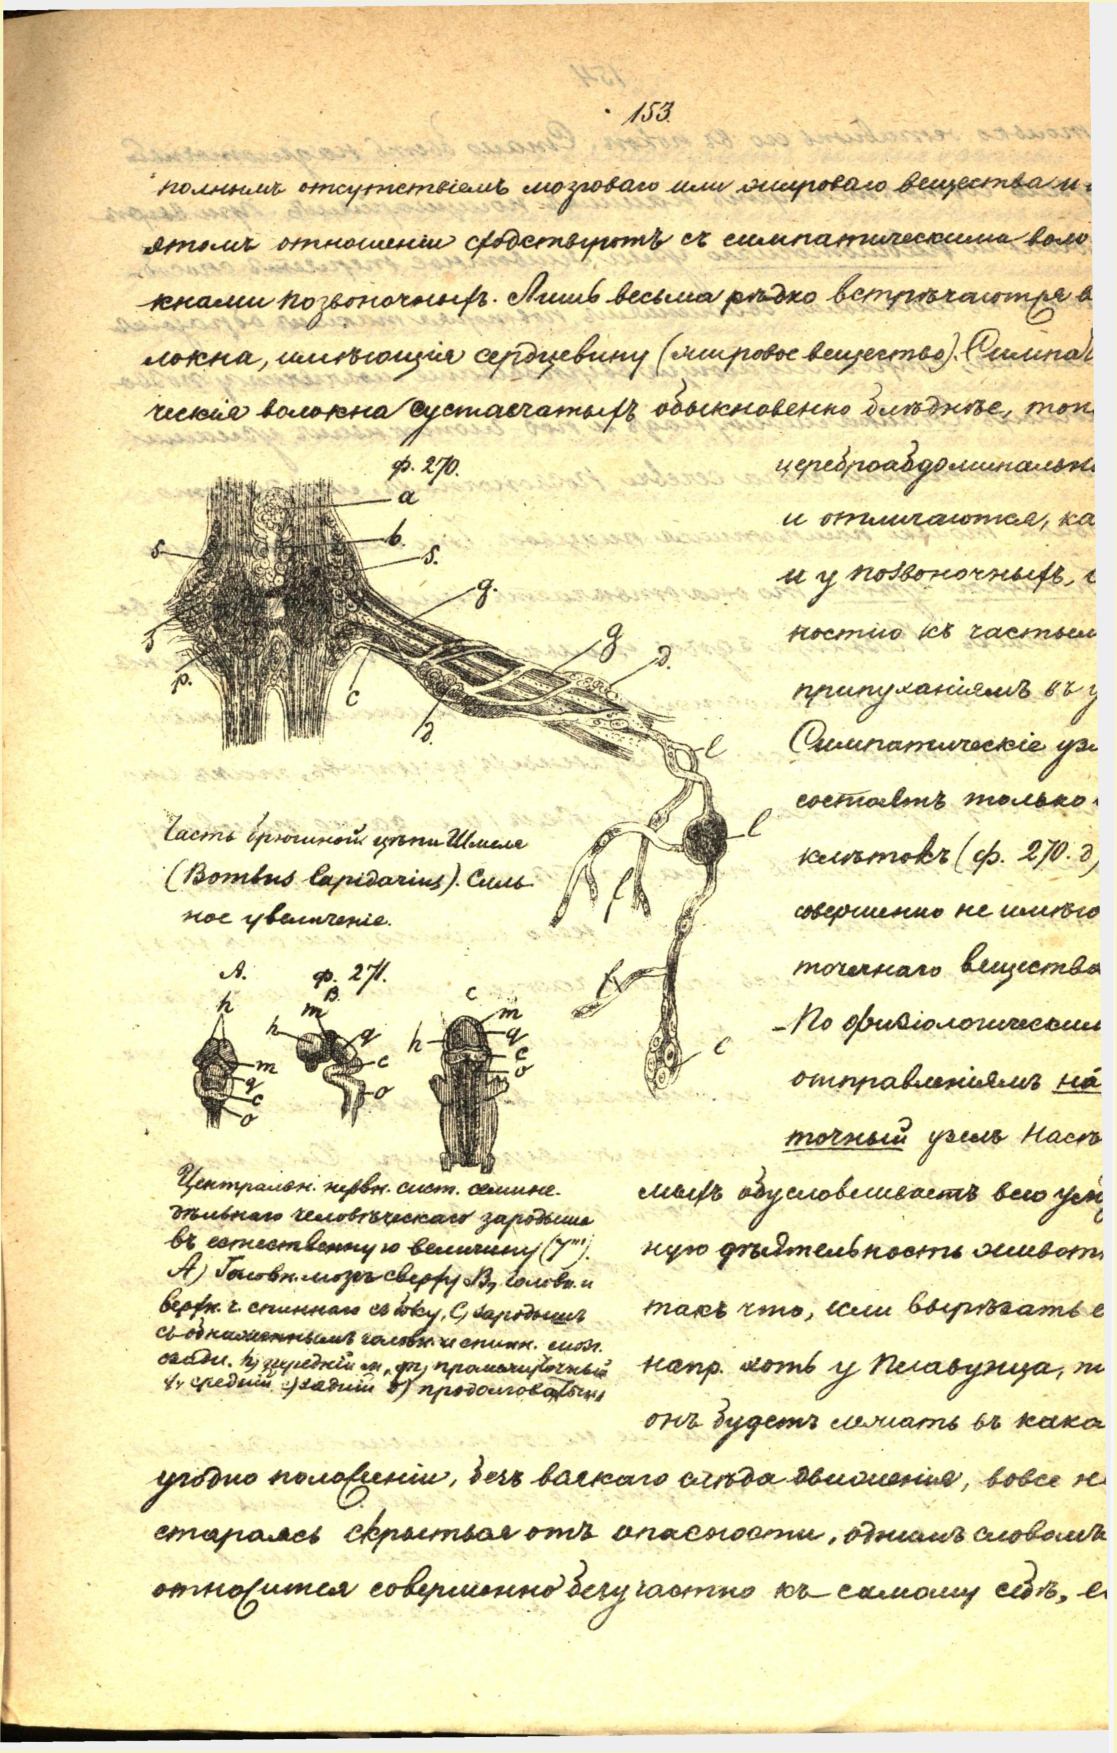 153.
полнымъ отсутствіемъ мозговаго или жироваго вещества и
этомъ отношеніи сходствуютъ съ симпатическими воло
кнами позвоночныхъ. Лишь весьма рѣдко встрѣчаются в
локна, имѣющія сердцевину (жировое вещество). Симпат
ческія волокна суставчатыхъ обыкновенно блѣднѣе, тон
ф. 270.
a
b.
s.
s.
s
g.
g
d.
p.
c
d.
l
l
f
f
c
цереброабдоминальн
и отличаются, ка
и у позвоночныхъ,
ностію къ частым
припуханіямъ въ у
Симпатическіе уз
состоятъ только
клѣтокъ (ф. 270. д)
совершенно не имѣю
точечнаго вещества
-По физіологическим
отправленіямъ на
точный узелъ насѣ
мыхъ обусловливаетъ всю
ную дѣятельность живот
такъ что, если вырѣзать е
напр. хоть у Плавунца, т
онъ будетъ лежать въ како
Часть брюшной цѣпи Шмеля
(Bombus lapidarius). Силь-
ное увеличеніе.
A. ф. 271.
B.
C
h
m
q
c
o
h
m
q
c
o
h
m
q
c
o
Центральн. нервн. сист. семине-
дѣльнаго человѣческаго зародыша
въ естественную величину (7''').
А) Головн. мозгъ сверху В) головн. и
верхн. ч. спиннаго съ боку, С) зародышъ
съ обнаженнымъ головн. и спинн. мозг.
сзади. h) передній м, m) промежуточный
q, средній c) задній o) продолговатый
угодно положеніи, безъ всякаго слѣда движенія, вовсе н
стараясь скрыться отъ опасности, однимъ словомъ
относится совершенно безучастно къ самому себѣ, е